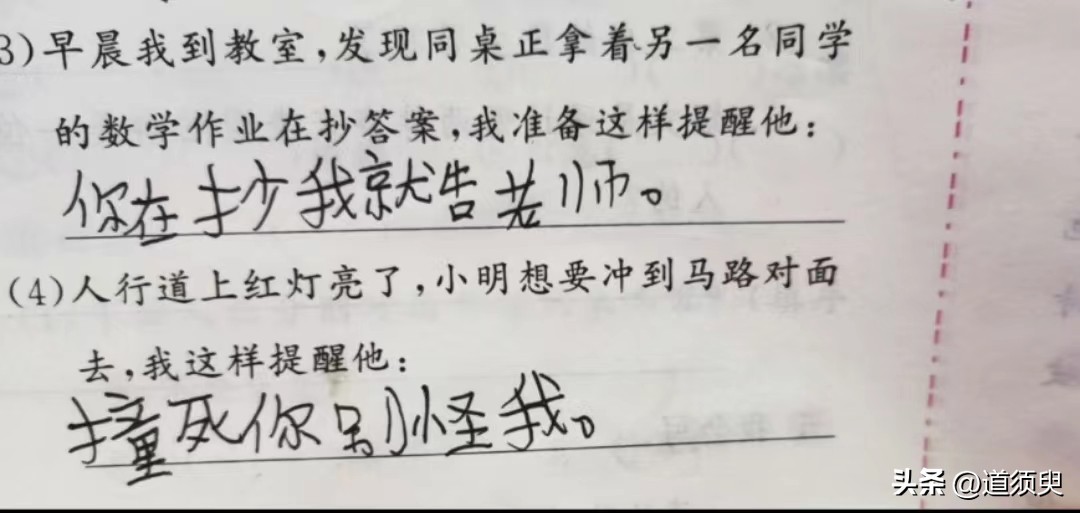 3)早晨我到教室,发现同桌正拿着另一名同学
的数学作业在抄答案,我准备这样提醒他:
你在抄我就告老师。
(4)人行道上红灯亮了,小明想要冲到马路对面
去,我这样提醒他:
撞死你别怪我。
头条 @道须臾